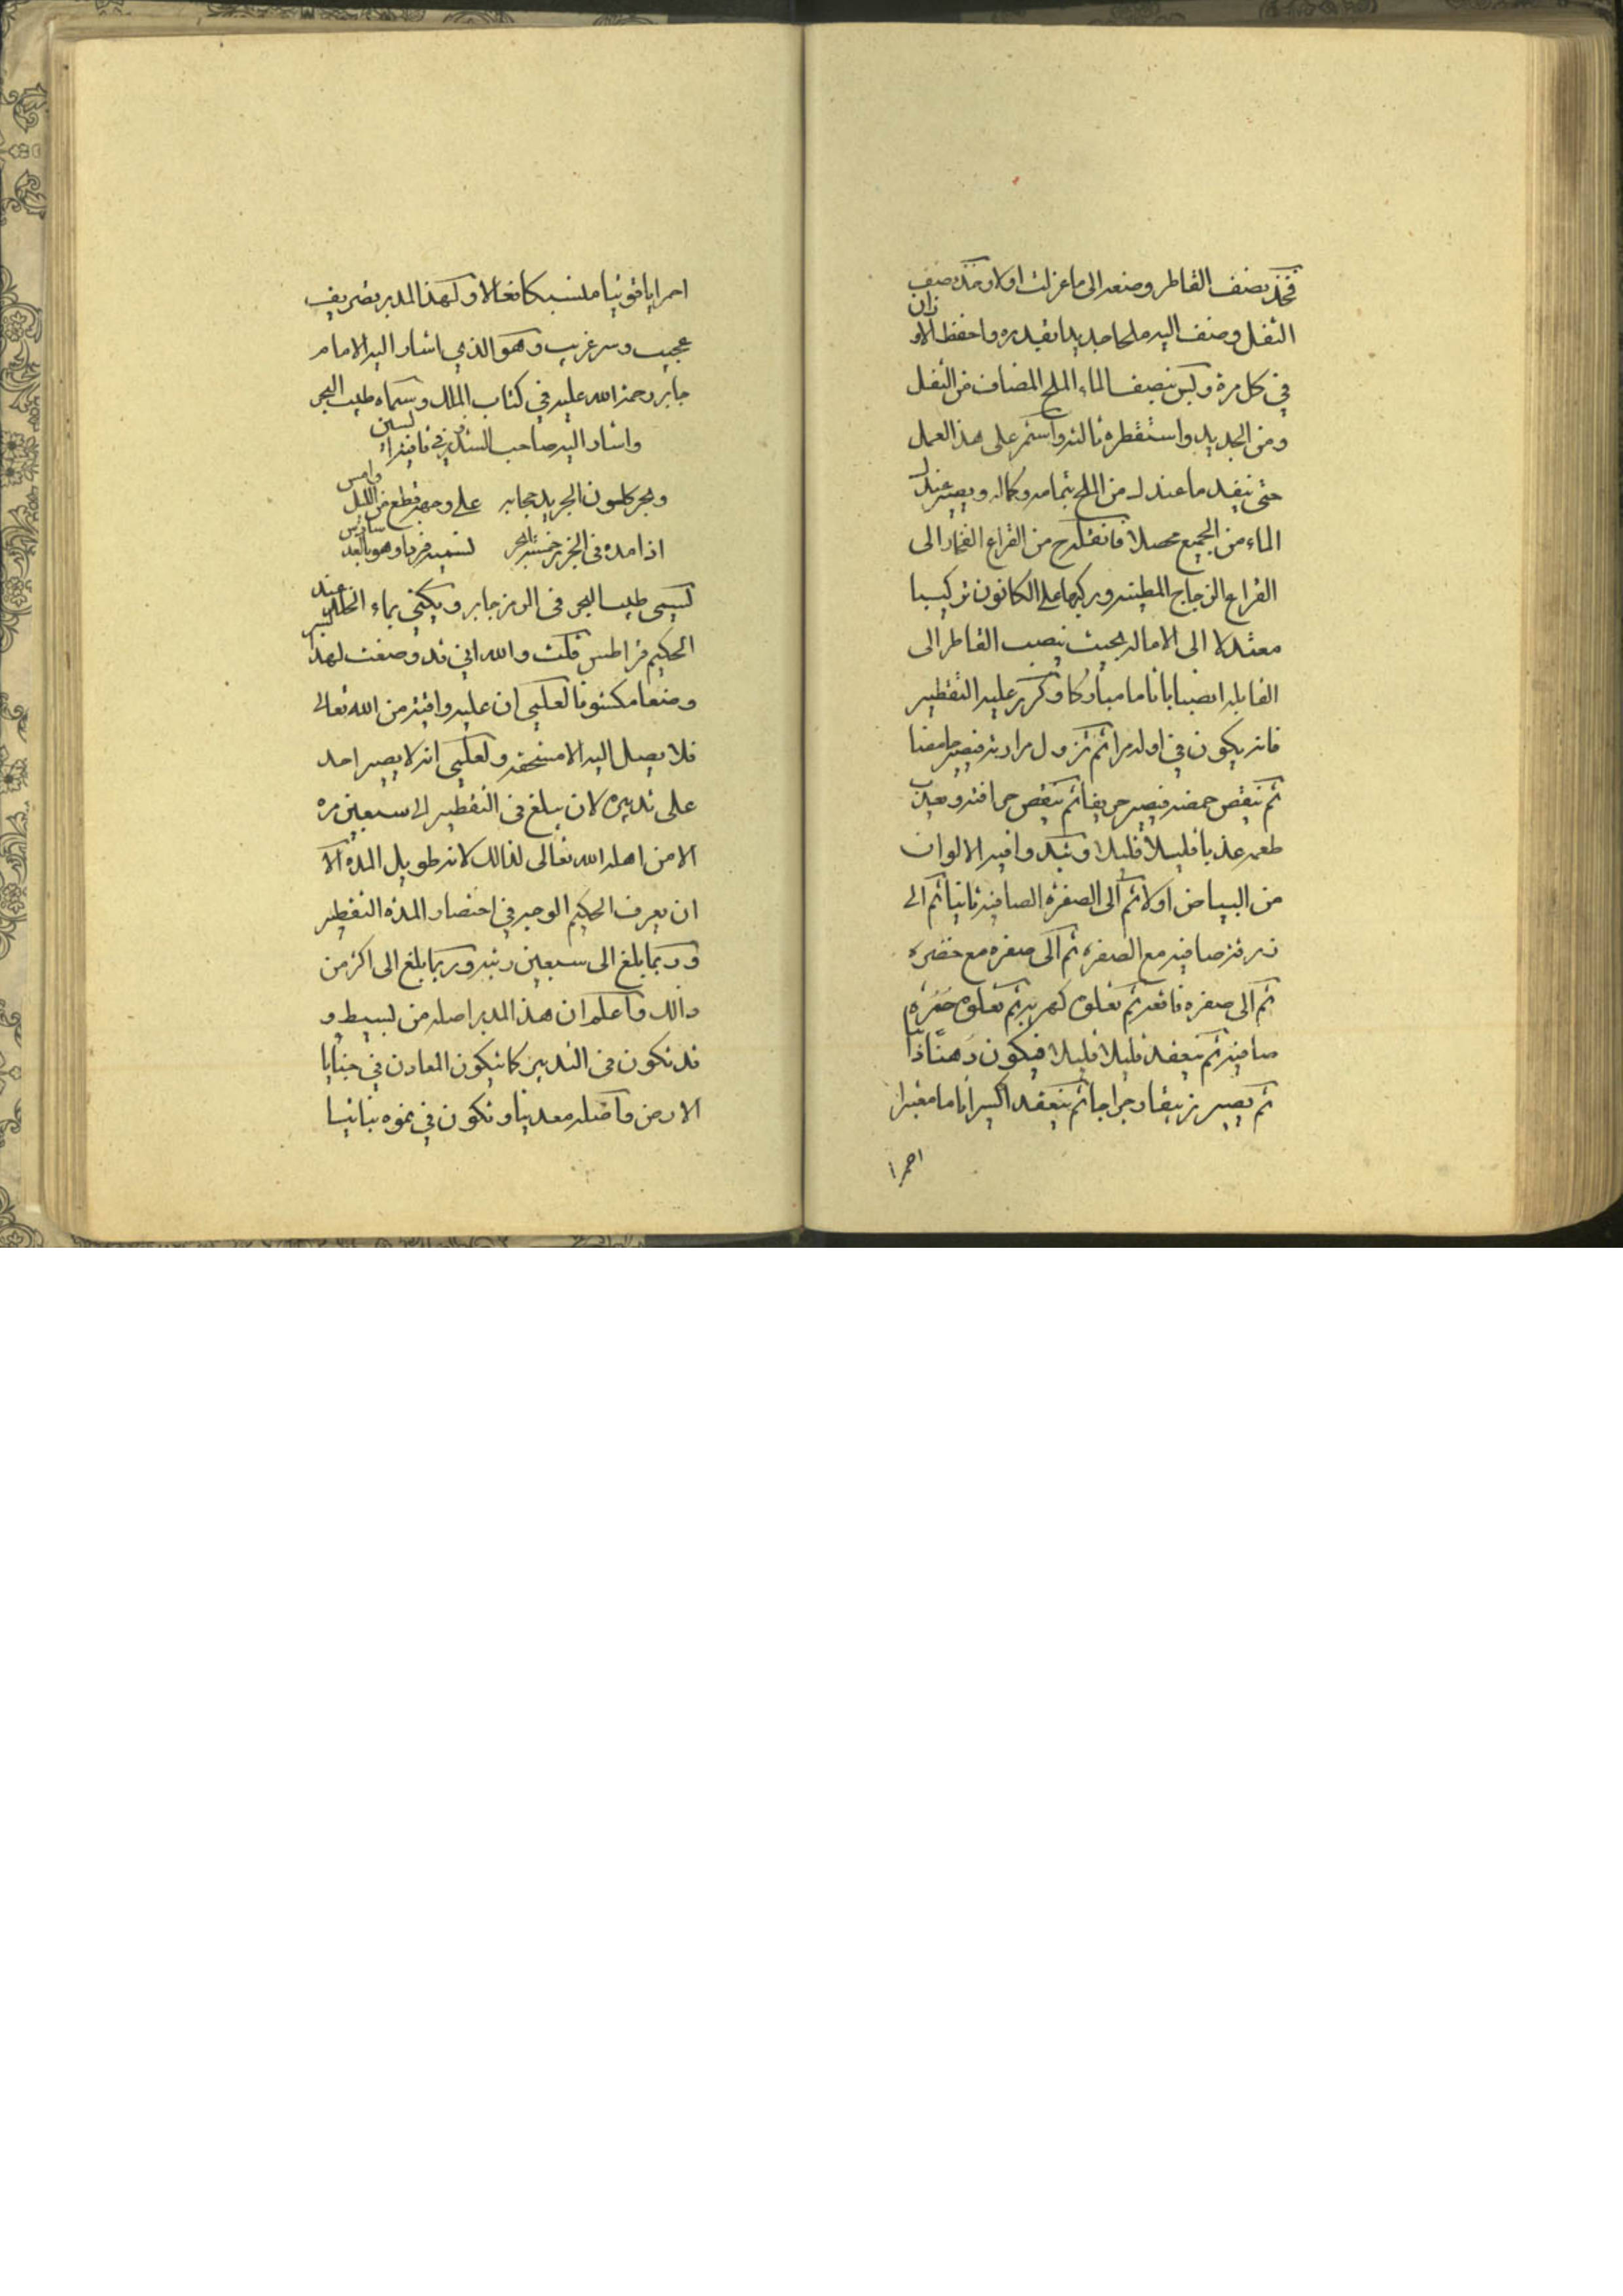 فخذ نصف القاطر وضعه الى ما عزلت اولا وخذ نصف
الثفل وضف اليه ملحا جديدا بقدره واحفظ الاوزان
في كل مرة وليكن نصف الماء الملح المضاف من الثفل
ومن الجديد واستقطره ثالثه واستمر على هذا العمل
حتى ينفد ما عندك من الملح بتمامه وكماله ويصير عندك
الماء من الجميع محصلا فانقله من القراع الفخار الى
القراع الزجاج المطينه وركبها على الكانون تركيبا
معتدلا الى الاماله بحيث ينصب القاطر الى
القابله انصبابا تاما مباركا وكرر عليه التقطير
فانه يكون في اوله مرا ثم تزول مرارته فيصير حامضا
ثم تنقص حمضه فيصير حريفا ثم ينقص حرافته ويعذب
طعمه عذبا قليلا قليلا وتبدوا فيه الالوان
من البياض اولا ثم الى الصفره الصافيه ثانيا ثم الى
زرقه صافيه مع الصفره ثم الى صفره مع خضره
ثم الى صفره فاقعه ثم تعلوه كهربيه ثم تعلوه حمره
صافيه ثم ينعقد قليلا قليلا فيكون دهنا ذائبا
ثم يصير زيبقا رجراجا ثم ينعقد اكسيرا تاما مغبرا
احمرا
احمرا ياقوتيا منسبكا فعالا ولهذا المدبر تصريف
عجيب وسر غريب وهو الذي اشار اليه الامام
جابر رحمة الله عليه في كتاب الملك وسماه طيب البحر
واشار اليه صاحب الشذور في قافية السين
وبحر كلون الجريد حبابه على وجهه قطع من الليل دامس
اذا مده في الجزر خمسة ابحر لتسميه فردا وهو بالعد سادس
يسمى طيب البحر في الرمز جابر ويكنى بماء الخل عند
الحكيم قراطس قلت والله اني قد وضعت لهذا السر
وضعا مكشوفا لعلمي ان عليه واقية من الله تعالى
فلا يصل اليه الا مستحقه ولعلمي انه لا يصبر احد
على تدبيره لان يبلغ في التقطير الى سبعين مره
الا من اهله الله تعالى لذالك لانه طويل المده الا
ان يعرف الحكيم الوجه في اختصار المده التقطير
وربما بلغ الى سبعين رتبه وربما بلغ الى اكثر من
ذالك واعلم ان هذا المدبر اصله من بسيط و
قد تكون في التدبير كما تتكون المعادن في خبايا
الارض واصله معدنيا وتكون في نموه نباتيا